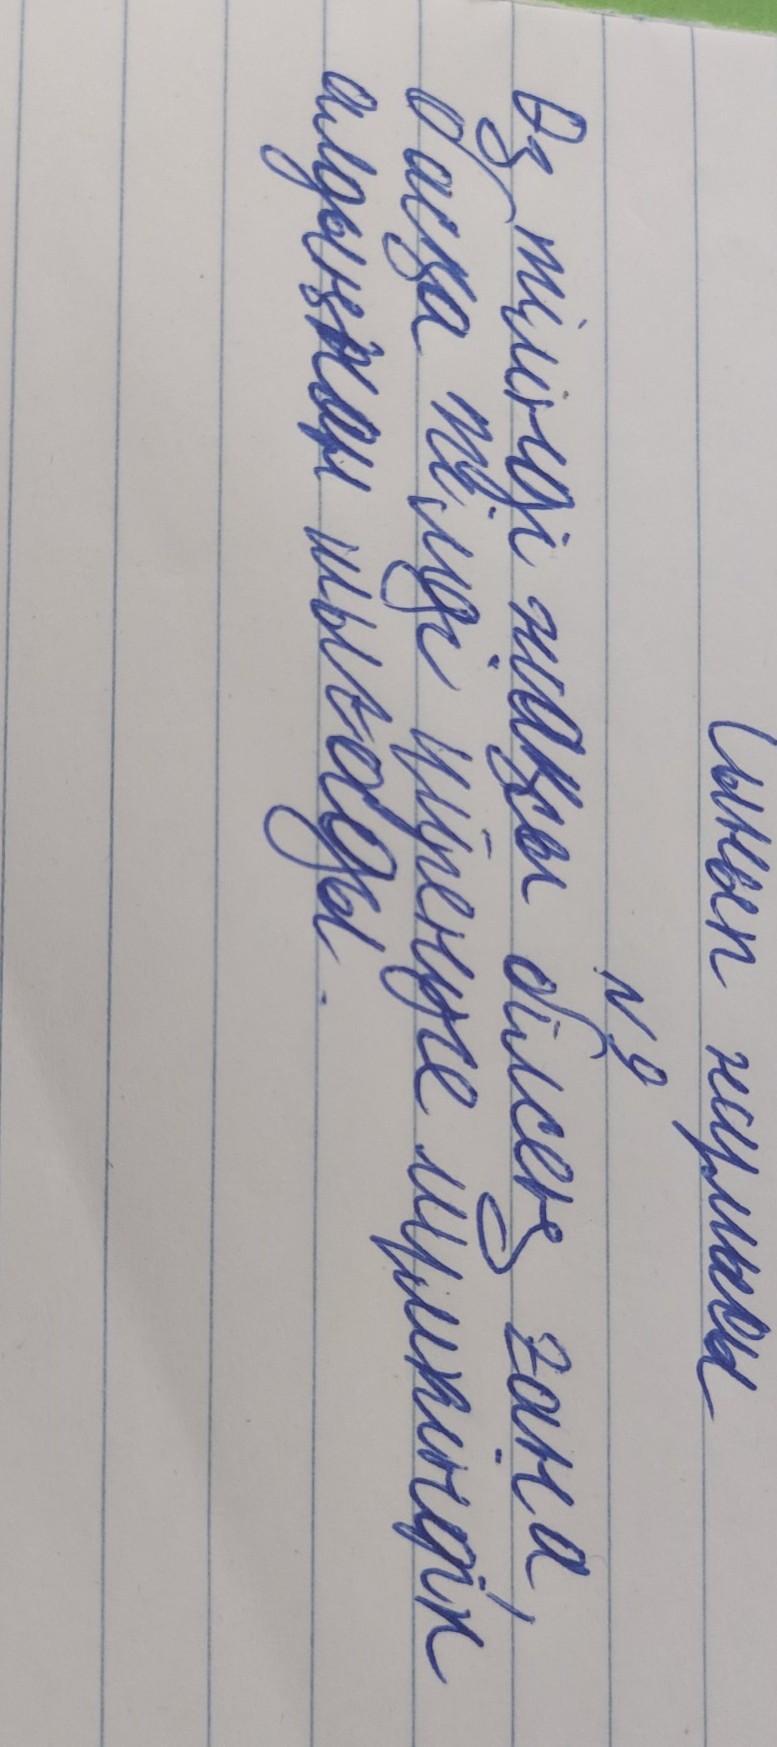 Сынып жұмысы
№9
Өз тіліңді жақсы білсең ғана,
басқа тілді үйренуге мүмкіндік
алдыңнан шығады.